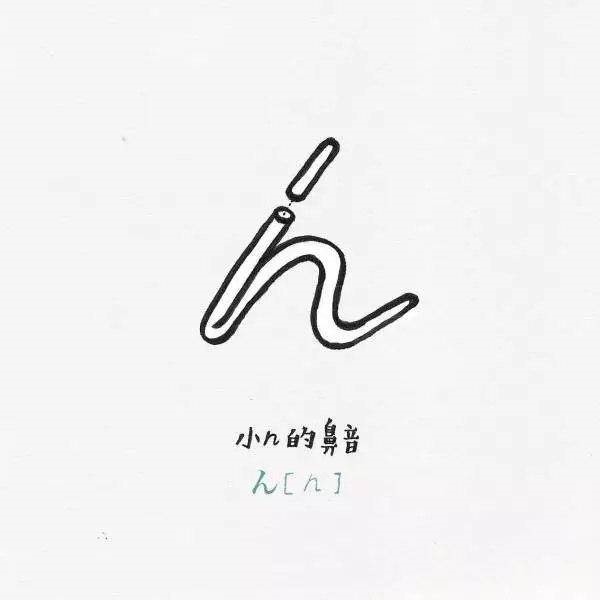 小n的鼻音
ん[n]